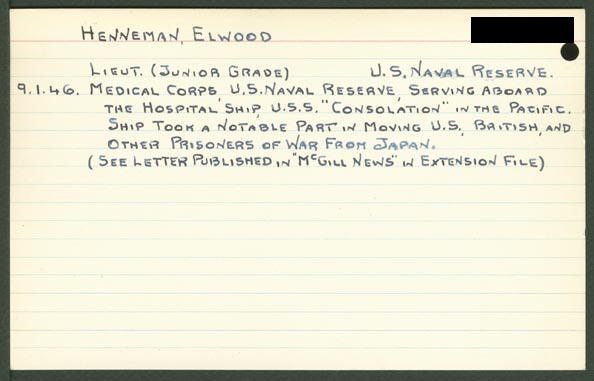 HENNEMAN, ELWOOD
LIEUT. (JUNIOR GRADE) U.S. NAVAL RESERVE.
9.1.46. MEDICAL CORPS, U.S. NAVAL RESERVE, SERVING ABOARD
THE HOSPITAL SHIP, U.S.S. "CONSOLATION" IN THE PACIFIC.
SHIP TOOK A NOTABLE PART IN MOVING U.S., BRITISH, AND
OTHER PRISONERS OF WAR FROM JAPAN.
(SEE LETTER PUBLISHED IN "McGILL NEWS" IN EXTENSION FILE)